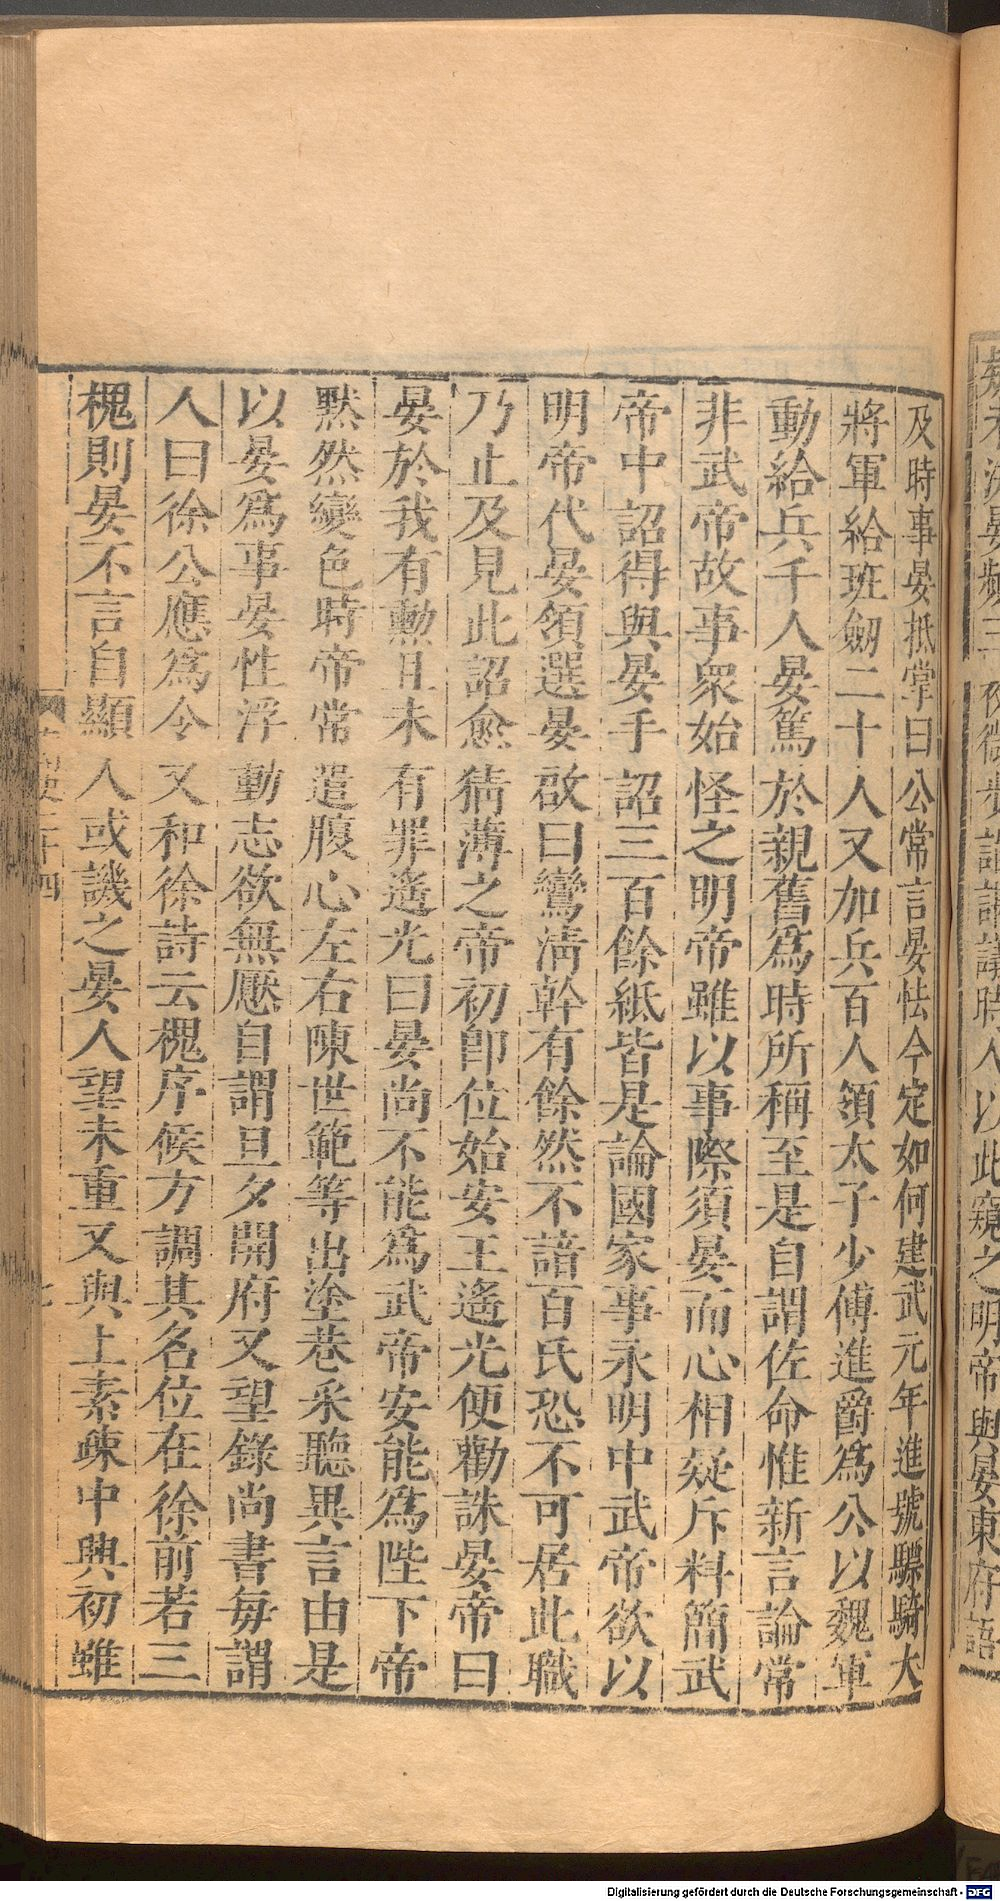 疑未決晏頻三夜微步詣諶議時人以此窺之明帝與晏東府語
及時事晏抵掌曰公常言晏怯今定如何建武元年進號驃騎大
將軍給班劒二十人又加兵百人領太子少傅進爵爲公以魏軍
動給兵千人晏篤於親舊爲時所稱至是自謂佐命惟新言論常
非武帝故事衆始怪之明帝雖以事際須晏而心相疑斥料簡武
帝中詔得與晏手詔三百餘紙皆是論國家事永明中武帝欲以
明帝代晏領選晏啟曰鸞淸幹有餘然不諳百氏恐不可居此職
乃止及見此詔愈猜薄之帝初卽位始安王遙光便勸誅晏帝曰
晏於我有勲且未有罪遙光曰晏尚不能爲武帝安能爲陛下帝
默然變色時帝常遣腹心左右陳世範等出塗巷采聽異言由是
以晏爲事晏性浮動志欲無厭自謂旦夕開府又望錄尚書每謂
人曰徐公應爲令又和徐詩云槐序候方調其名位在徐前若三
槐則晏不言自顯人或譏之晏人望未重又與上素疎中興初雖
史二十四 七
Digitalisierung gefördert durch die Deutsche Forschungsgemeinschaft - DFG